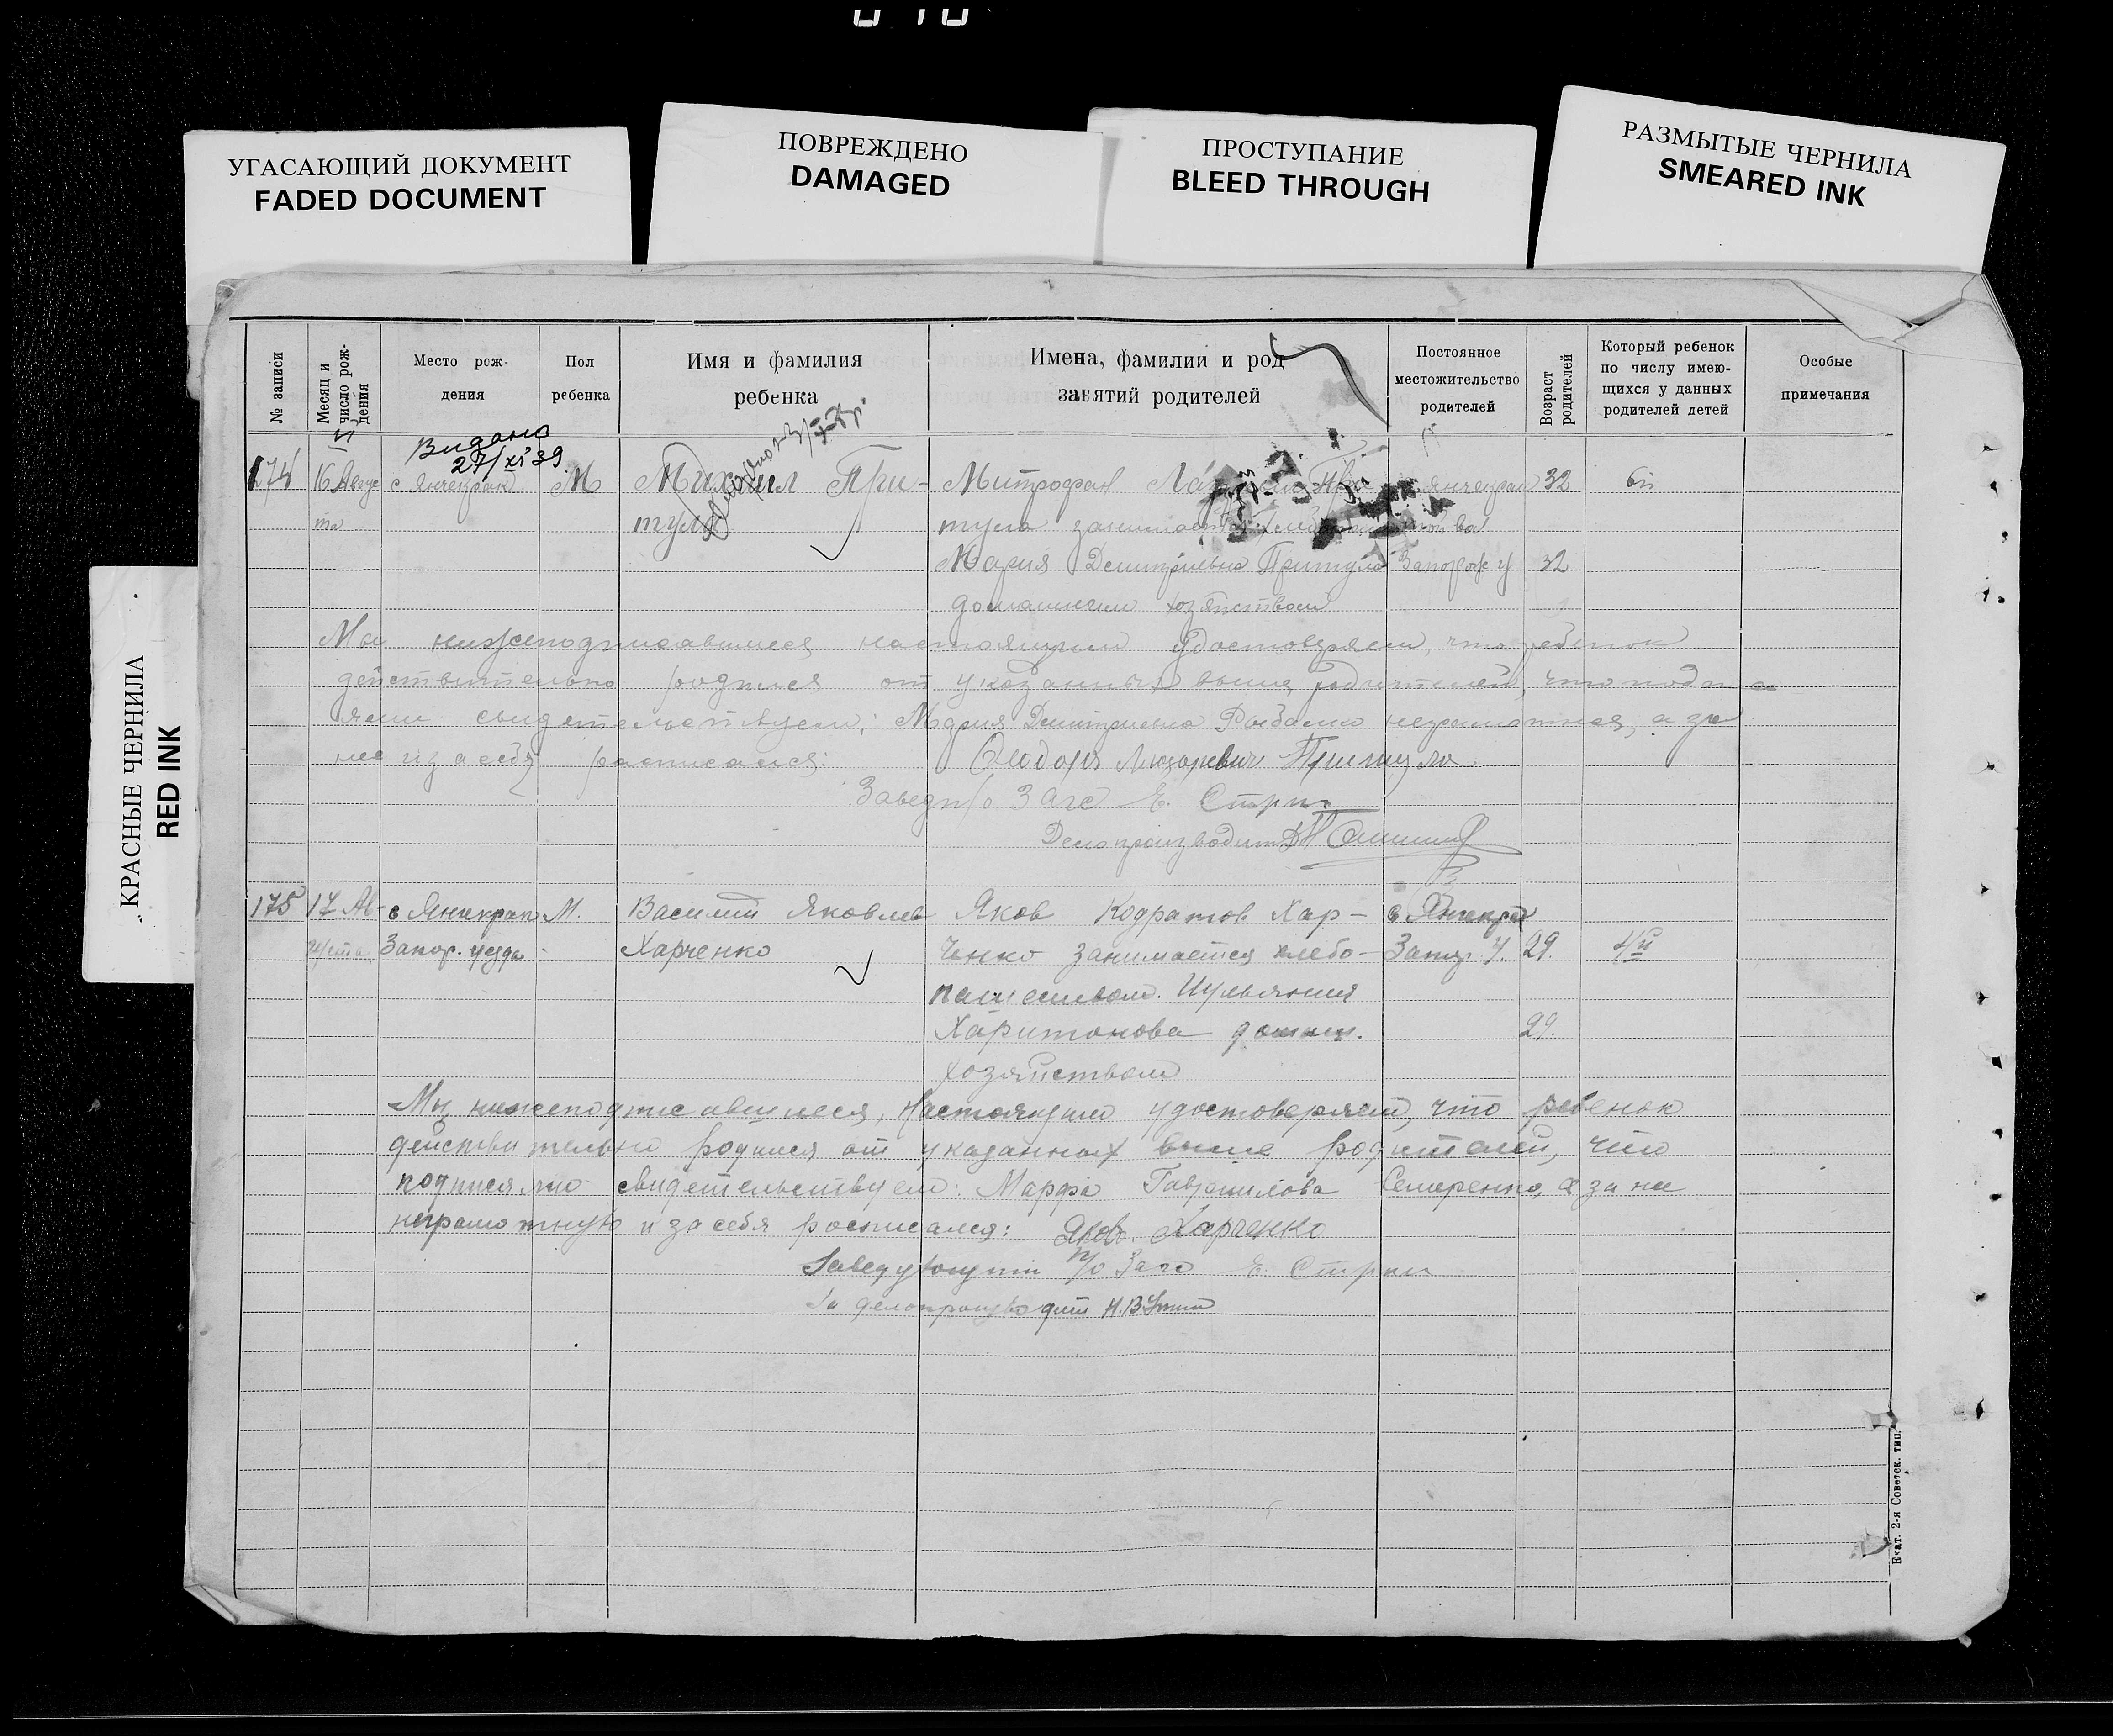 УГАСАЮЩИЙ ДОКУМЕНТ
FADED DOCUMENT
ПОВРЕЖДЕНО
DAMAGED
ПРОСТУПАНИЕ
BLEED THROUGH
РАЗМЫТЫЕ ЧЕРНИЛА
SMEARED INK
КРАСНЫЕ ЧЕРНИЛА
RED INK
№ записи
Месяц и число рож-дения
Место рож-дения
Пол ребенка
Имя и фамилия ребенка
Имена, фамилии и род занятий родителей
Постоянное местожительство родителей
Возраст родителей
Который ребенок по числу имею-щихся у данных родителей детей
Особые примечания
Видано
27/XI 39
174 16 Авгус с Янчекрак М Михаил При- Митрофан При- Янчекрак 32 6й
та тула тула занимается
Мария Дмитриевна Притула Запорож у 32
домашним хозяйством
Мы нижеподписавшиеся настоящим удостоверяем, что ребенок
действительно родился от указанных выше родителей, что подпи
сями свидетельствуем: Мария Дмитриевна неграмотная, а за
нее и за себя расписался: Лазаревич Притула
Заведп/о Загс Е. Стри
Делопроизводит
175 17 Ав- с Янчекрак М. Василий Яковлев Яков Кодратов Хар- с Янчекрак
густа Запор. уезда Харченко ченко занимается хлебо- Запор. у. 29. 4й
пашеством. Иульяния
Харитонова домаш. 29.
хозяйством
Мы, нижеподписавшиеся, настоящим удостоверяем, что ребенок
действительно родился от указанных выше родителей, что
подписями свидетельствуем: Марфа Гаврилова Семеренко, а за не
неграмотную и за себя росписался: Яков. Харченко
Заведующий п/о Загс Е. Стри
За делопроизводит
Екат. 2-я Советск. тип.